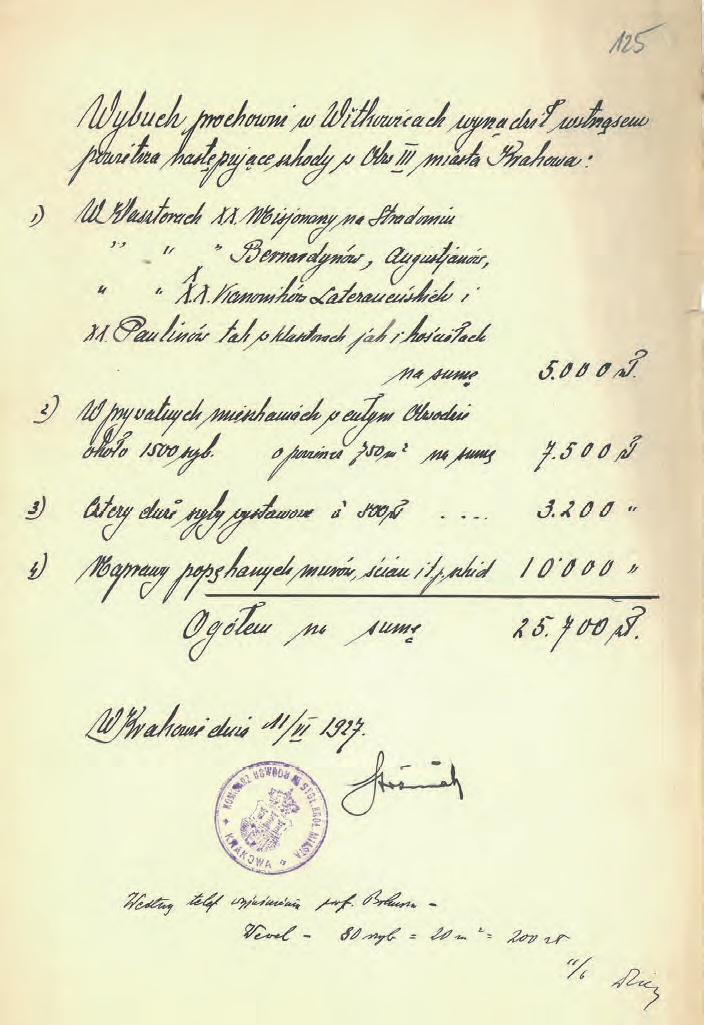 125
Wybuch prochowni w Witkowicach wyrządził wstrząsem
powietrza następujące szkody w Obw III miasta Krakowa:
1) W Klasztorach XX. Misjonarzy na Stradomiu
" " " Bernardynów, Augustjanów,
" " XX. Kanoników Laterańskich i
XX. Paulinów tak w klasztorach jak i kościołach
na sumę 5.000 zł.
2) W prywatnych mieszkaniach w całym Obwodzie
około 1500 szyb. o powierz 750 m² na sumę 7.500 zł
3) Cztery duże szyby wystawowe à 800 zł .... 3.200 "
4) Naprawy popękanych murów, ścian i t.p. szkód 10'000 "
Ogółem na sumę 25.700 zł.
W Krakowie dnia 11/VI 1927.
KOMISARZ OBWODU III STOŁ. KRÓL. MIASTA
KRAKOWA
Według telef wyjaśnienia prof.
Wawel – 80 szyb = 20 m² = 200 zł
11/6